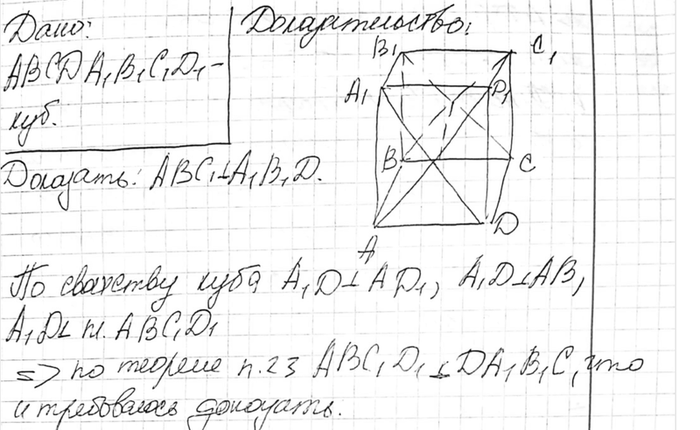 Дано:
Доказательство:
ABCDA₁B₁C₁D₁ –
куб.
B₁ C₁
A₁ D₁
B C
A D
Доказать: ABC₁⊥A₁B₁D.
По свойству куба A₁D⊥AD₁, A₁D⊥AB,
A₁D⊥ пл. ABC₁D₁
=> по теореме п.23 ABC₁D₁⊥DA₁B₁C, что
и требовалось доказать.